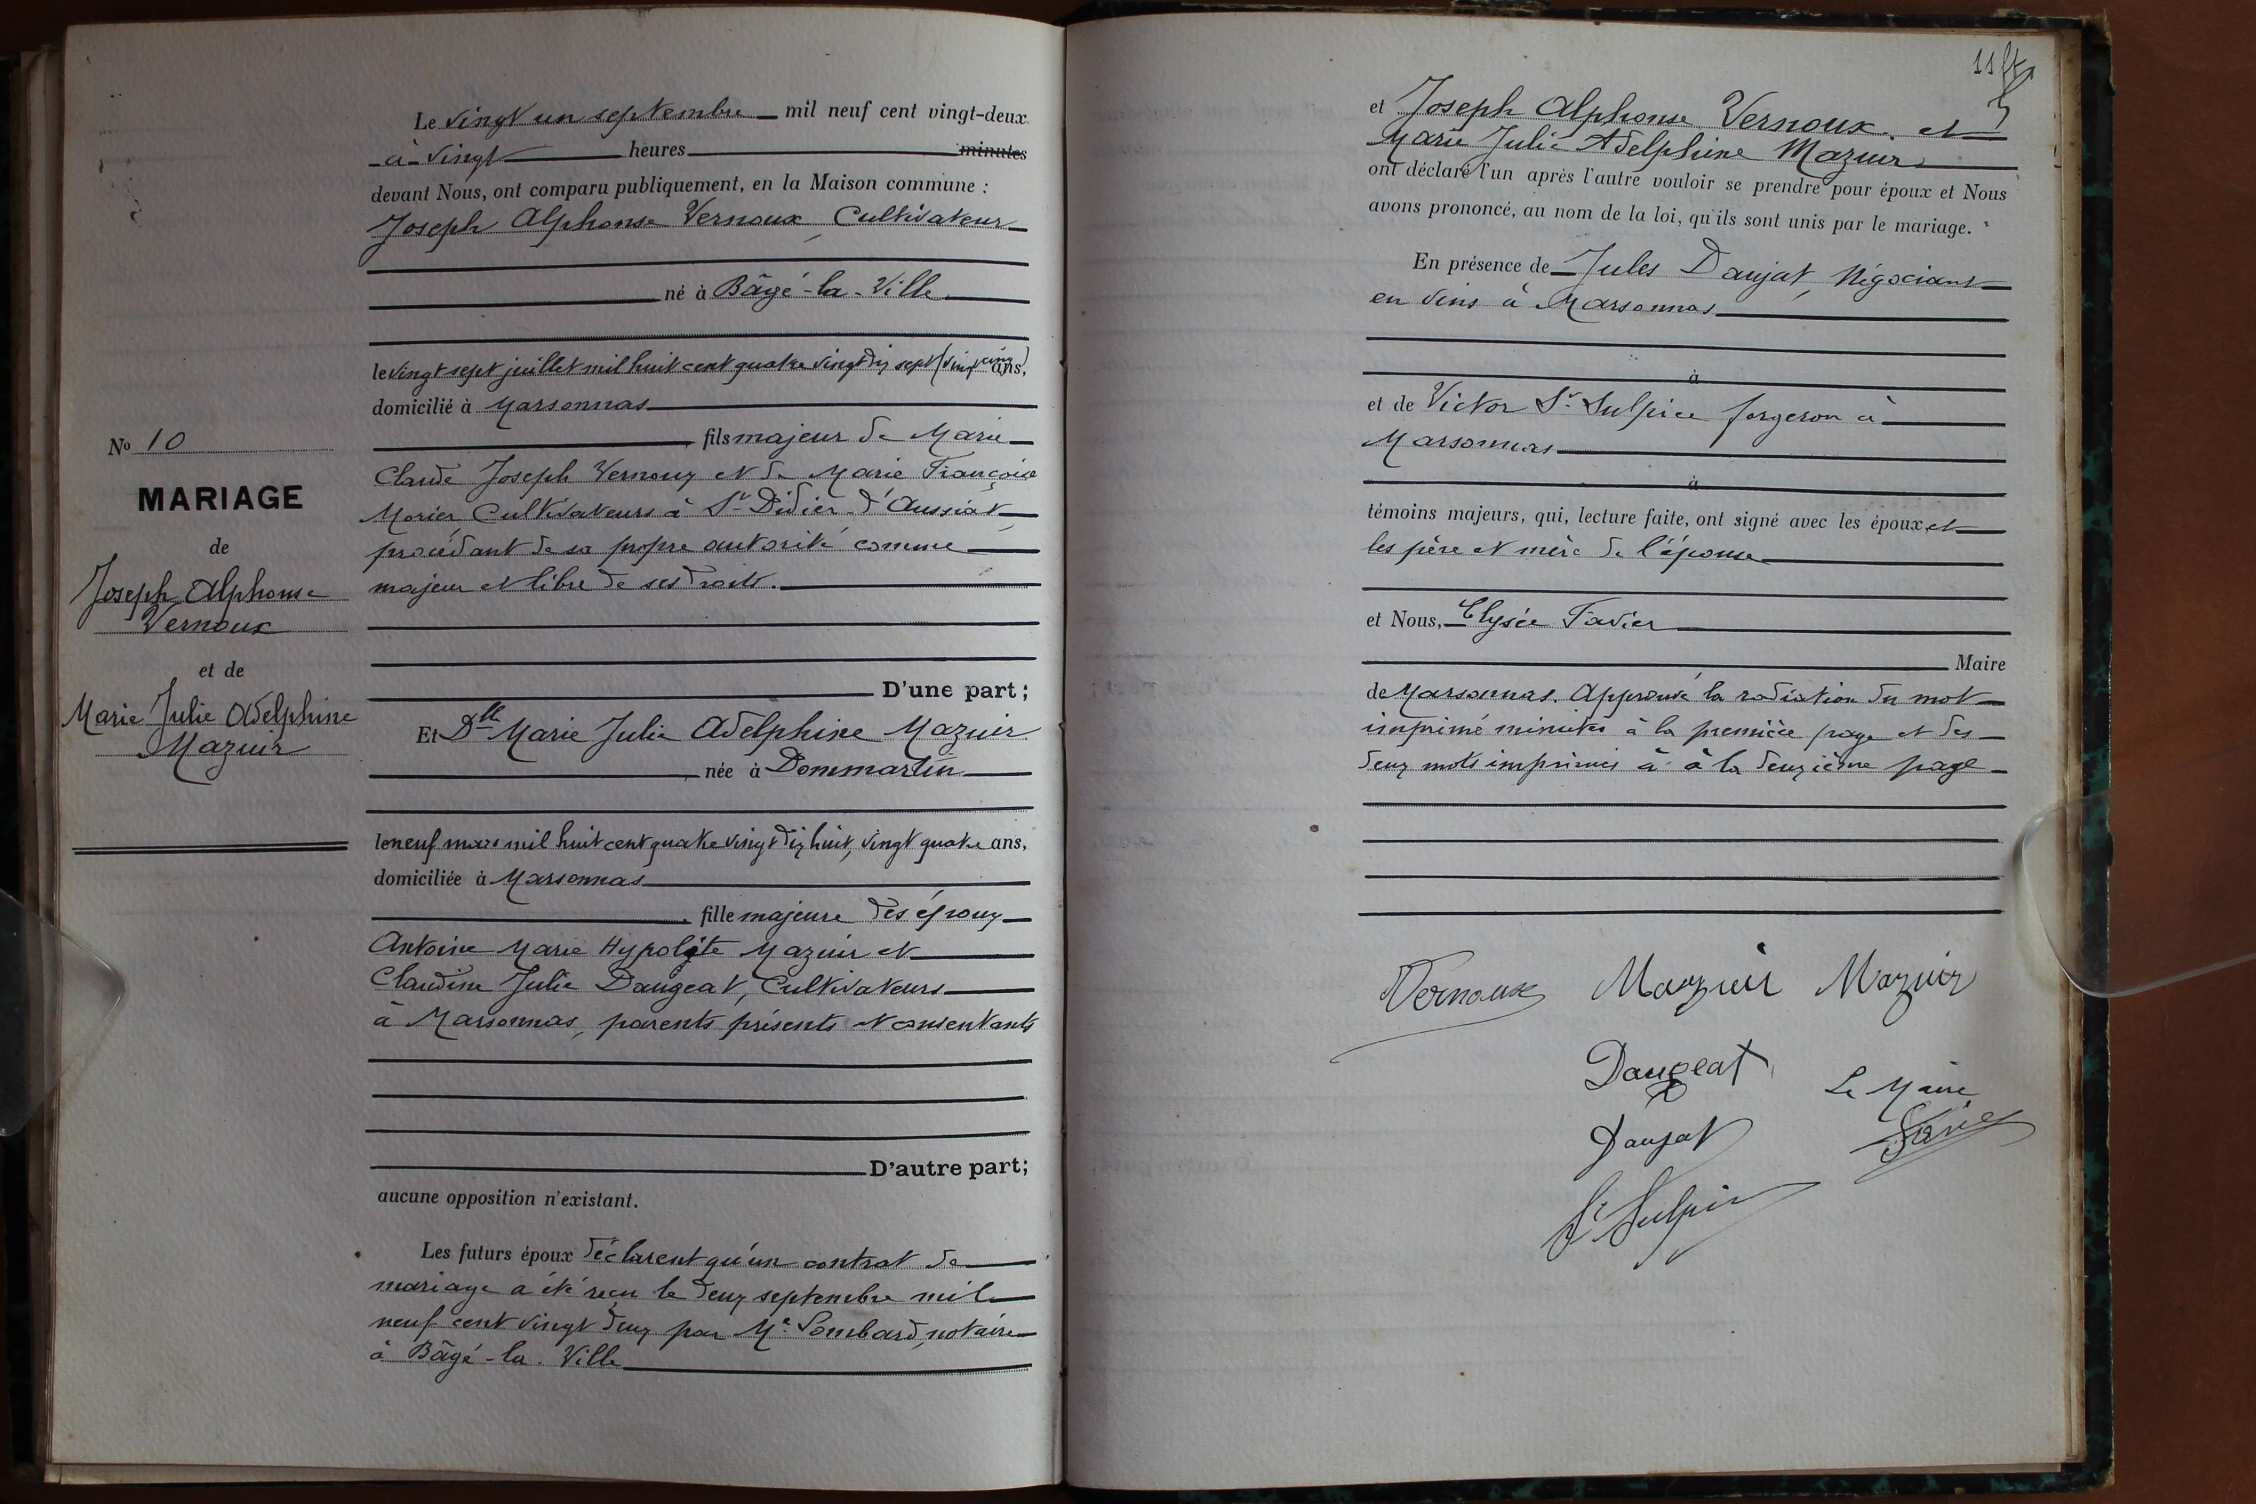 Le vingt un septembre mil neuf cent vingt-deux
à vingt heures minutes
devant Nous, ont comparu publiquement, en la Maison commune :
Joseph Alphonse Vernoux, Cultivateur
né à Bâgé-la-Ville
le vingt sept juillet mil huit cent quatre vingt dix sept (vingt cinq) ans,
domicilié à Marsonnas
fils majeur de Marie
Claude Joseph Vernoux et de Marie Françoise
Morier, Cultivateurs à St Didier d'Aussiat,
procédant de sa propre autorité comme
majeur et libre de ses droits.
D'une part ;
No 10
MARIAGE
de
Joseph Alphonse
Vernoux
et de
Marie Julie Adelphine
Mazuir
Et Dlle Marie Julie Adelphine Mazuir
née à Dommartin
le neuf mars mil huit cent quatre vingt dix huit, vingt quatre ans,
domiciliée à Marsonnas
fille majeure des époux
Antoine Marie Hypolite Mazuir et
Claudine Julie Daugeat, Cultivateurs
à Marsonnas, parents présents et consentants
D'autre part;
aucune opposition n'existant.
Les futurs époux déclarent qu'un contrat de
mariage a été reçu le deux septembre mil
neuf cent vingt deux par Me Lombard, notaire
à Bâgé-la-Ville
et Joseph Alphonse Vernoux et
Marie Julie Adelphine Mazuir
ont déclaré l'un après l'autre vouloir se prendre pour époux et Nous
avons prononcé, au nom de la loi, qu'ils sont unis par le mariage.
En présence de Jules Daujat, Négociant
en vins à Marsonnas
à
et de Victor St Sulpice forgeron à
Marsonnas
à
témoins majeurs, qui, lecture faite, ont signé avec les époux et
les père et mère de l'épouse
et Nous, Elysée Favier
Maire
de Marsonnas. Approuvé la radiation du mot
imprimé minutes à la première page et des
deux mots imprimés à à la deuxième page
Vernoux Mazuir Mazuir
Daugeat
Le Maire
Daujat
Favier
St Sulpice